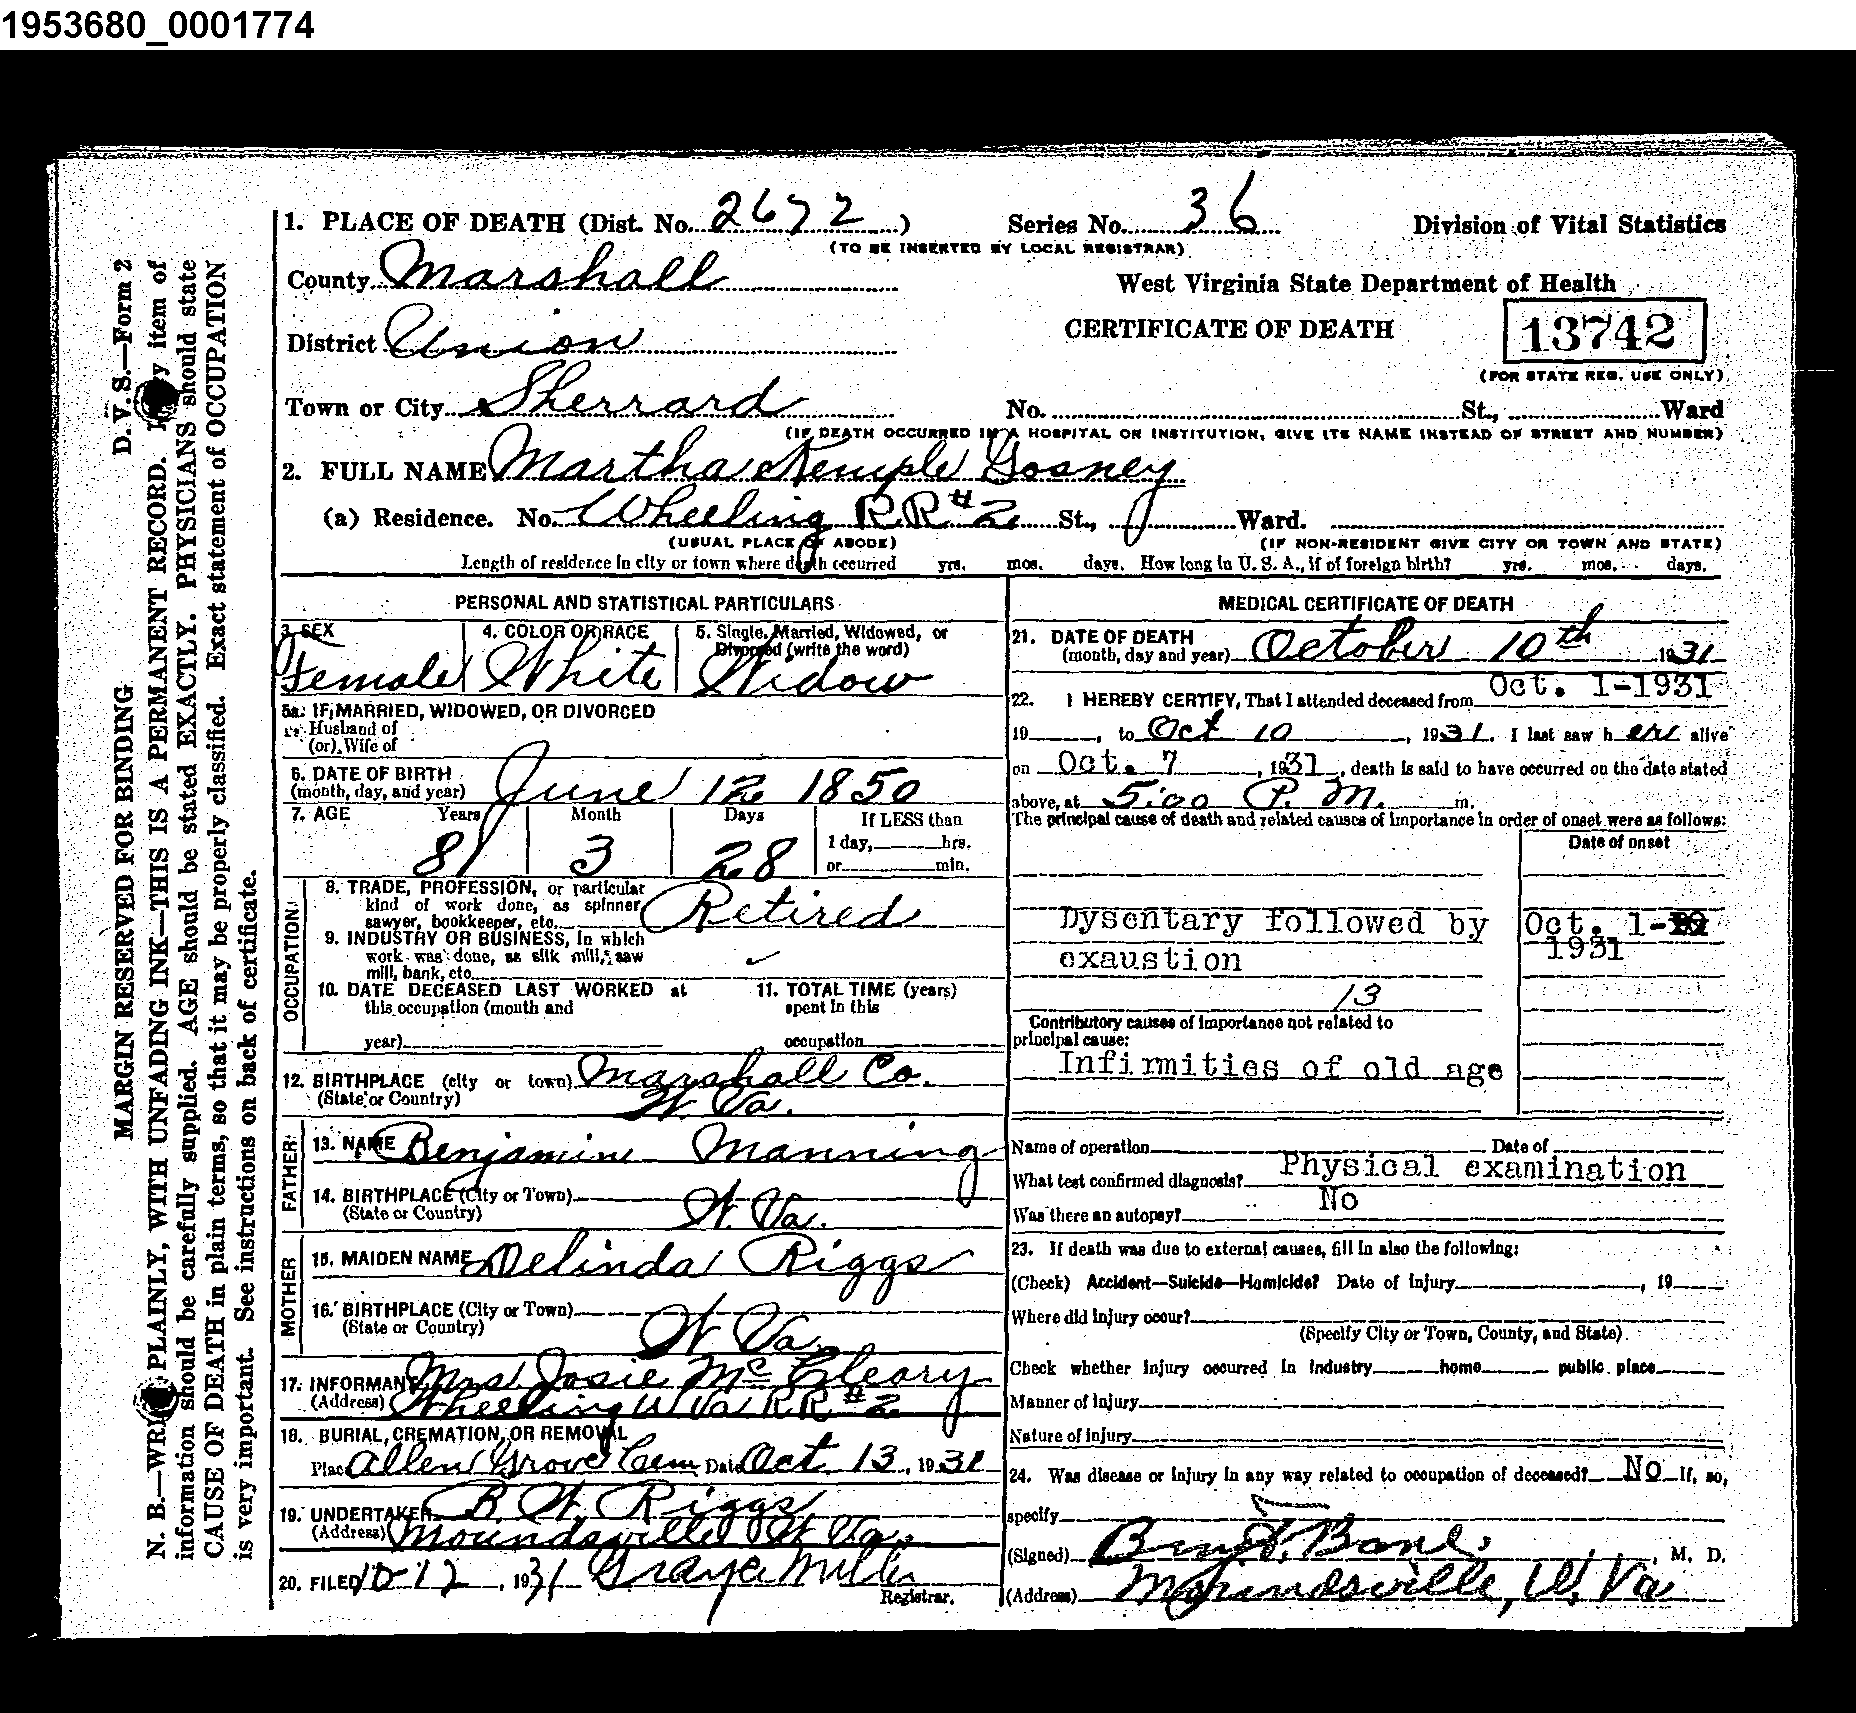 1953680_0001774
1. PLACE OF DEATH (Dist. No. 2672 ) Series No. 36 Division of Vital Statistics
(TO BE INSERTED BY LOCAL REGISTRAR)
County Marshall
West Virginia State Department of Health
District Union
CERTIFICATE OF DEATH 13742
(FOR STATE REG. USE ONLY)
Town or City Sherrard No. St., Ward
(IF DEATH OCCURRED IN A HOSPITAL OR INSTITUTION, GIVE ITS NAME INSTEAD OF STREET AND NUMBER)
2. FULL NAME Martha Kemple Gosney
(a) Residence. No. Wheeling RR #2 St., Ward.
(USUAL PLACE OF ABODE) (IF NON-RESIDENT GIVE CITY OR TOWN AND STATE)
Length of residence in city or town where death occurred yrs. mos. days. How long in U. S. A., if of foreign birth? yrs. mos. days.
PERSONAL AND STATISTICAL PARTICULARS
3. SEX 4. COLOR OR RACE 5. Single, Married, Widowed, or
Divorced (write the word)
Female White Widow
5a. IF MARRIED, WIDOWED, OR DIVORCED
Husband of
(or) Wife of
6. DATE OF BIRTH
(month, day, and year) June 12 1850
7. AGE Years Month Days If LESS than
1 day, hrs.
81 3 28 or min.
OCCUPATION
8. TRADE, PROFESSION, or particular
kind of work done, as spinner
sawyer, bookkeeper, etc. Retired
9. INDUSTRY OR BUSINESS, in which
work was done, as silk mill, saw
mill, bank, etc.
10. DATE DECEASED LAST WORKED at 11. TOTAL TIME (years)
this occupation (month and spent in this
year) occupation
12. BIRTHPLACE (city or town) Marshall Co.
(State or Country) W. Va.
FATHER
13. NAME Benjamine Manning
14. BIRTHPLACE (City or Town)
(State or Country) W. Va.
MOTHER
15. MAIDEN NAME Delinda Riggs
16. BIRTHPLACE (City or Town)
(State or Country) W Va.
17. INFORMANT Mrs Josie McCleary
(Address) Wheeling W Va RR #2
18. BURIAL, CREMATION, OR REMOVAL
Place Allen Grove Cem Date Oct 13, 1931
19. UNDERTAKER B. W. Riggs
(Address) Moundsville W Va.
20. FILED 10-12, 1931 Miller
Registrar.
MEDICAL CERTIFICATE OF DEATH
21. DATE OF DEATH
(month, day and year) October 10th 1931
22. I HEREBY CERTIFY, That I attended deceased from Oct. 1-1931
19 , to Oct 10 , 1931. I last saw h er alive
on Oct. 7 , 1931, death is said to have occurred on the date stated
above, at 5:00 P. M. m.
The principal cause of death and related causes of importance in order of onset were as follows:
Date of onset
Dysentary followed by Oct. 1-
exaustion 1931
13
Contributory causes of importance not related to
principal cause:
Infirmities of old age
Name of operation Date of
What test confirmed diagnosis? Physical examination
Was there an autopsy? No
23. If death was due to external causes, fill in also the following:
(Check) Accident—Suicide—Homicide? Date of injury , 19
Where did injury occur?
(Specify City or Town, County, and State)
Check whether injury occurred in industry home public place
Manner of injury
Nature of injury
24. Was disease or injury in any way related to occupation of deceased? No If, so,
specify
(Signed) Benj. F. Bone. , M. D.
(Address) Moundsville, W. Va
D. V. S.—Form 2
MARGIN RESERVED FOR BINDING
N. B.—WRITE PLAINLY, WITH UNFADING INK—THIS IS A PERMANENT RECORD. Every item of
information should be carefully supplied. AGE should be stated EXACTLY. PHYSICIANS should state
CAUSE OF DEATH in plain terms, so that it may be properly classified. Exact statement of OCCUPATION
is very important. See instructions on back of certificate.